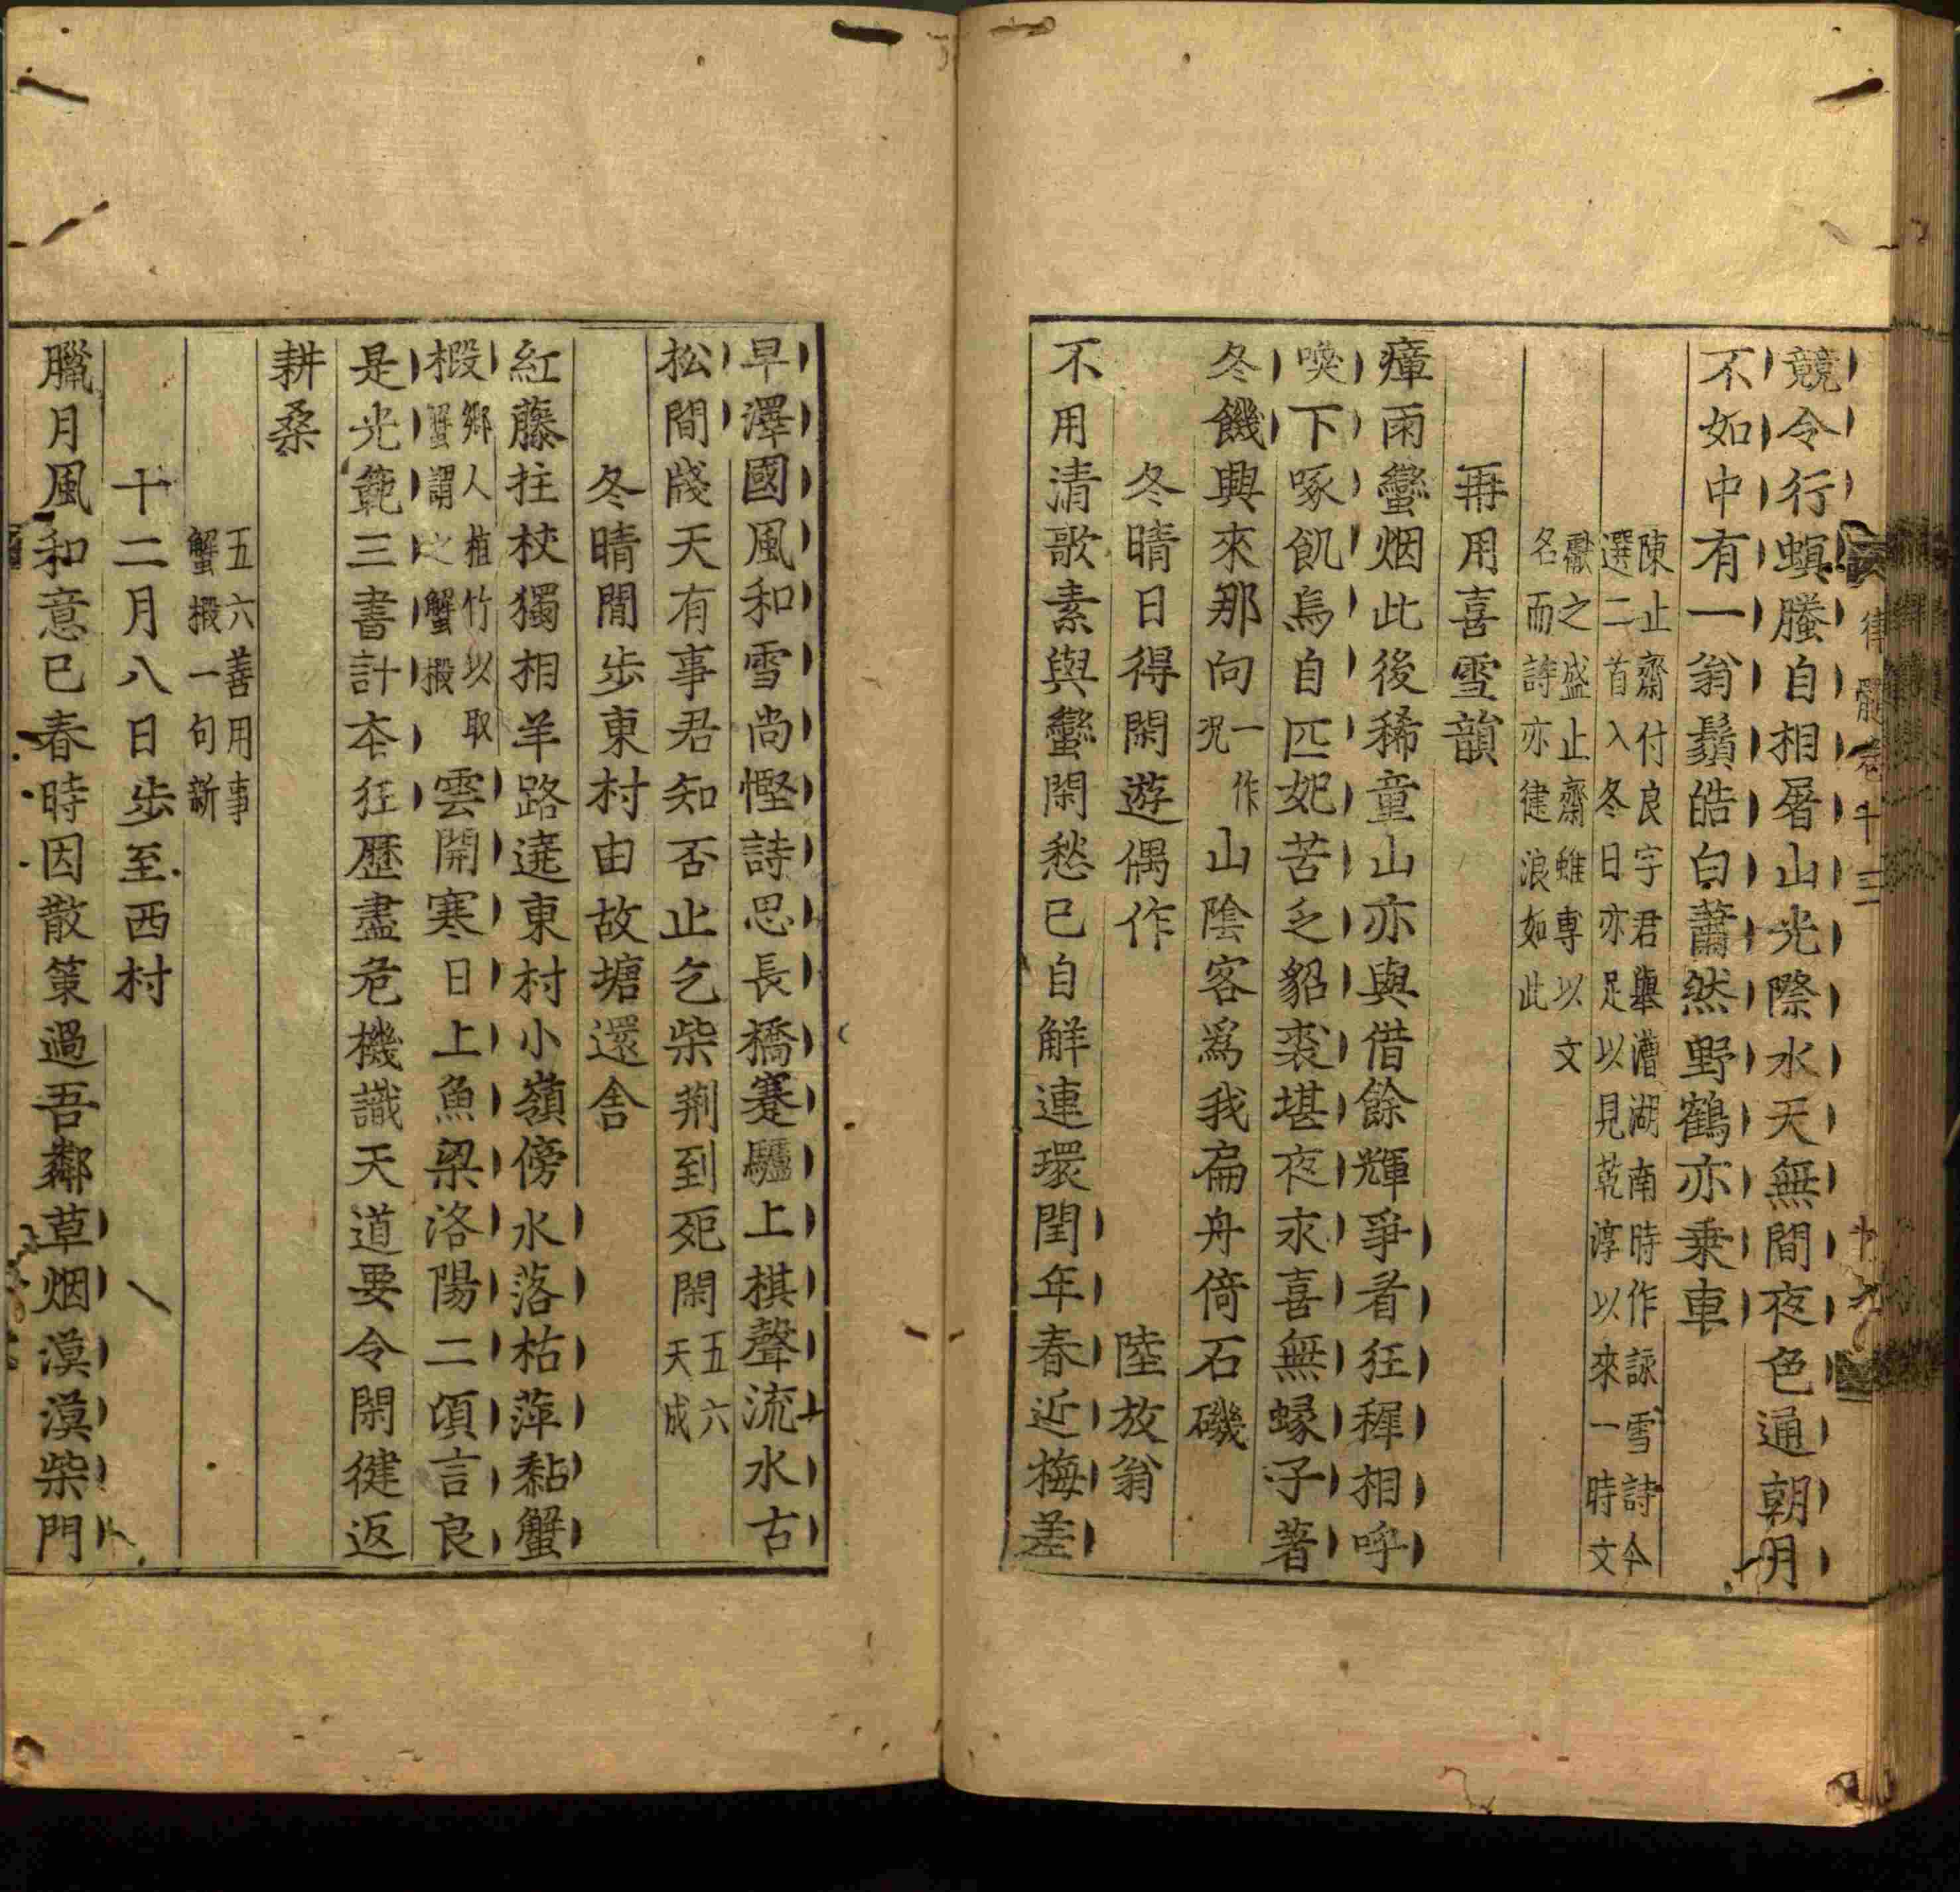 競令行螟螣自相屠山光際水天無間夜色通朝月
不如中有一翁鬚皓白蕭然野鶴亦乗車
陳止齋付良字君舉漕湖南時作詠雪詩今
選二首入冬日亦足以見乾淳以來一時文
獻之盛止齋雖専以文
名而詩亦健浪如此
再用喜雪韻
瘴雨蠻烟此後稀童山亦與借餘輝爭看狂穉相呼
喚下啄飢烏自匹妃苦乏貂裘堪夜永喜無蝝子著
冬饑興來那向一作況山陰客爲我扁舟倚石磯
冬晴日得閑遊偶作 陸放翁
不用清歌素與蠻閑愁已自解連環閏年春近梅差
早澤國風和雪尚慳詩思長橋蹇驢上棋聲流水古
松間牋天有事君知否止乞柴荆到死閑五六天成
冬晴閒歩東村由故塘還舎
紅藤拄杖獨相羊路遶東村小嶺傍水落枯萍黏蟹
椴鄉人植竹以取蟹謂之蟹椴雲開寒日上魚梁洛陽二頃言良
是光範三書計本狂歷盡危機識天道要令閑健返
耕桑
五六善用事
蟹椴一句新
十二月八日歩至西村
臘月風和意已春時因散策過吾鄰草烟漠漠柴門
律髓卷十三
十九